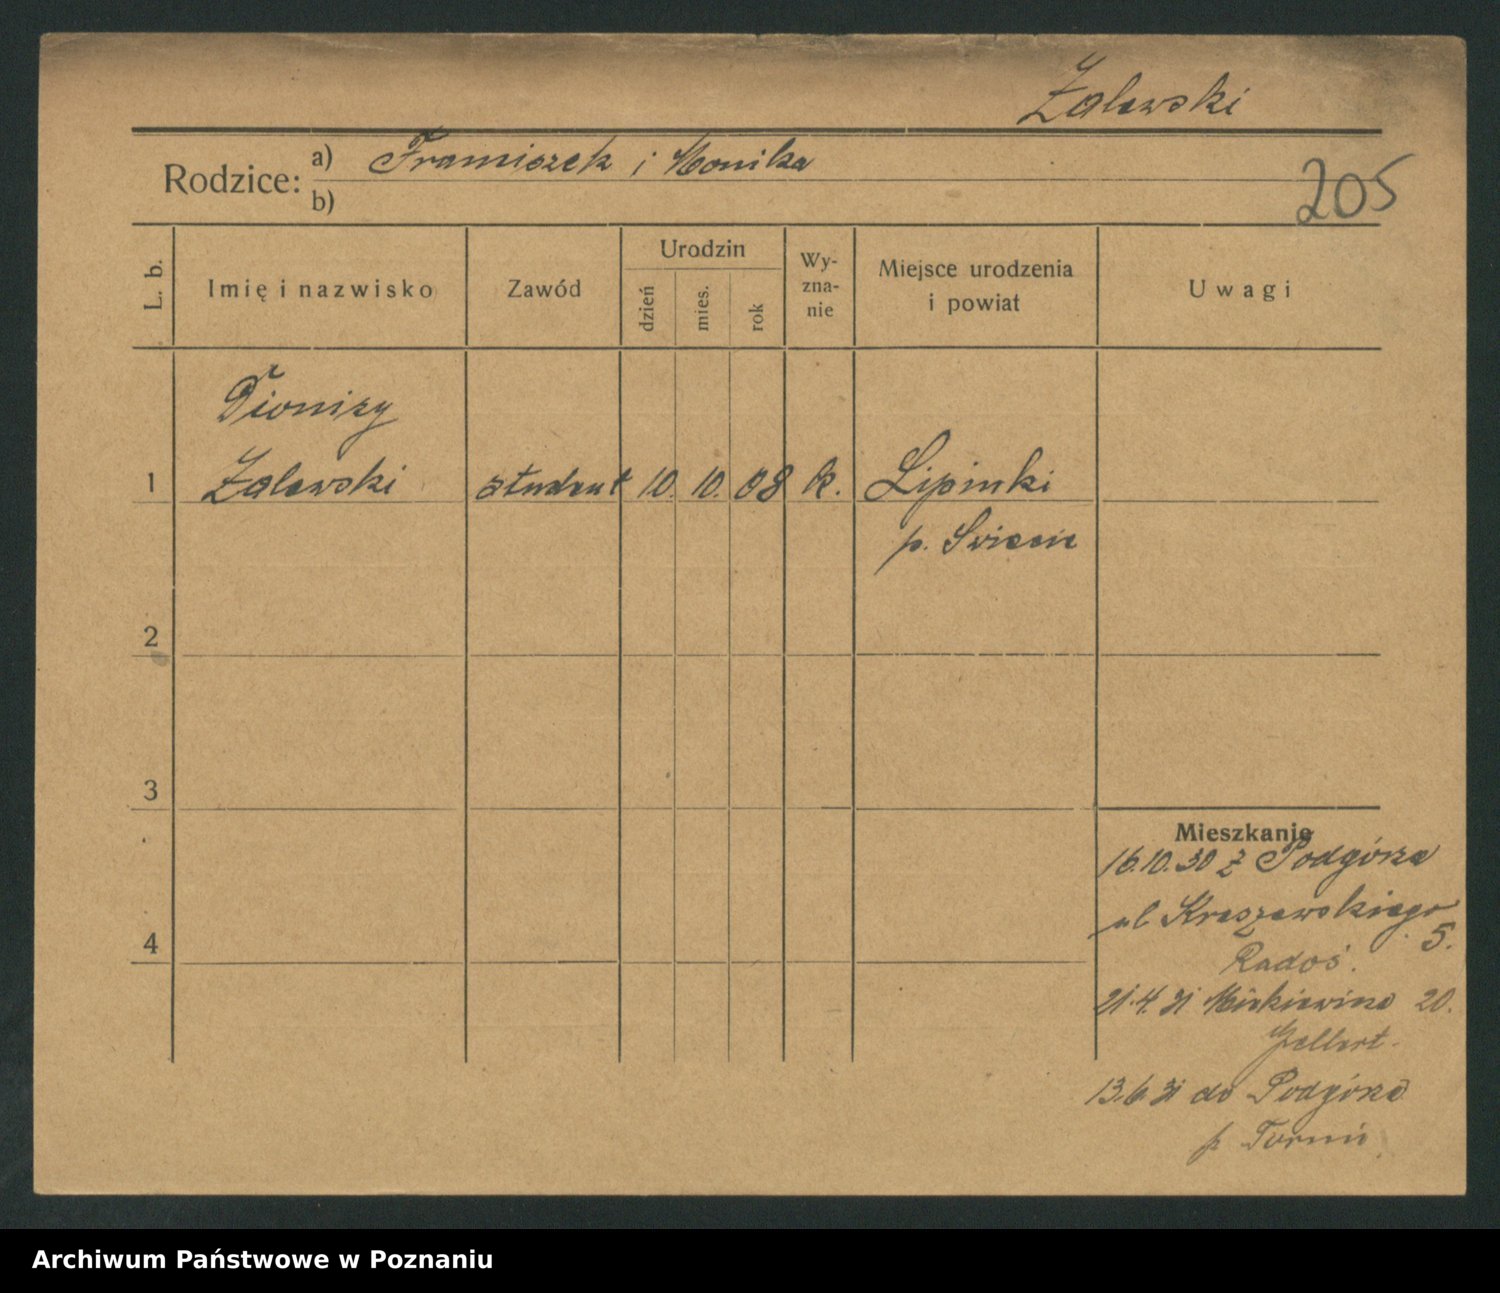 Zalewski
Rodzice: a) Franciszek i Monika
b)
205
L. b.
Imię i nazwisko
Zawód
Urodzin
dzień
mies.
rok
Wy-
zna-
nie
Miejsce urodzenia
i powiat
Uwagi
Dionizy
1 Zalewski student 10. 10. 08 k. Lipinki
p. Świecie
2
3
4
Mieszkanie
16.10.30 z Podgórza
ul Kraszewskiego
5.
Radoś.
21.4.31 Mickiewicza 20.
Gellert.
13.6.31 do Podgórza
p. Toruń
Archiwum Państwowe w Poznaniu